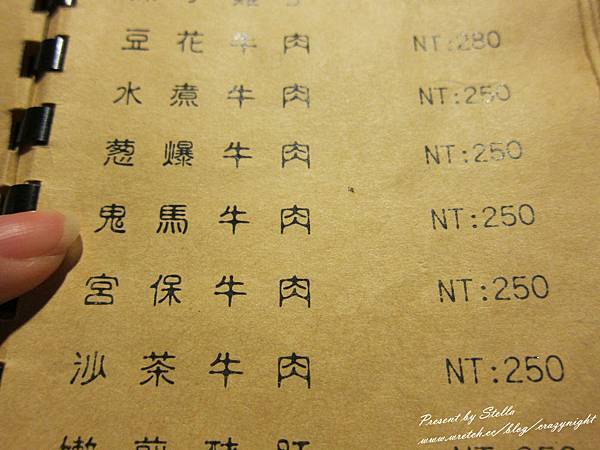 豆花牛肉 NT:280
水煮牛肉 NT:250
蔥爆牛肉 NT:250
鬼馬牛肉 NT:250
宮保牛肉 NT:250
沙茶牛肉 NT:250
Present by Stella
www.wretch.cc/blog/crazynight